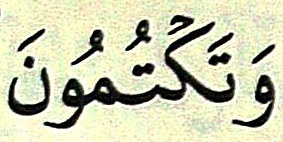 وَتَكۡتُمُونَ